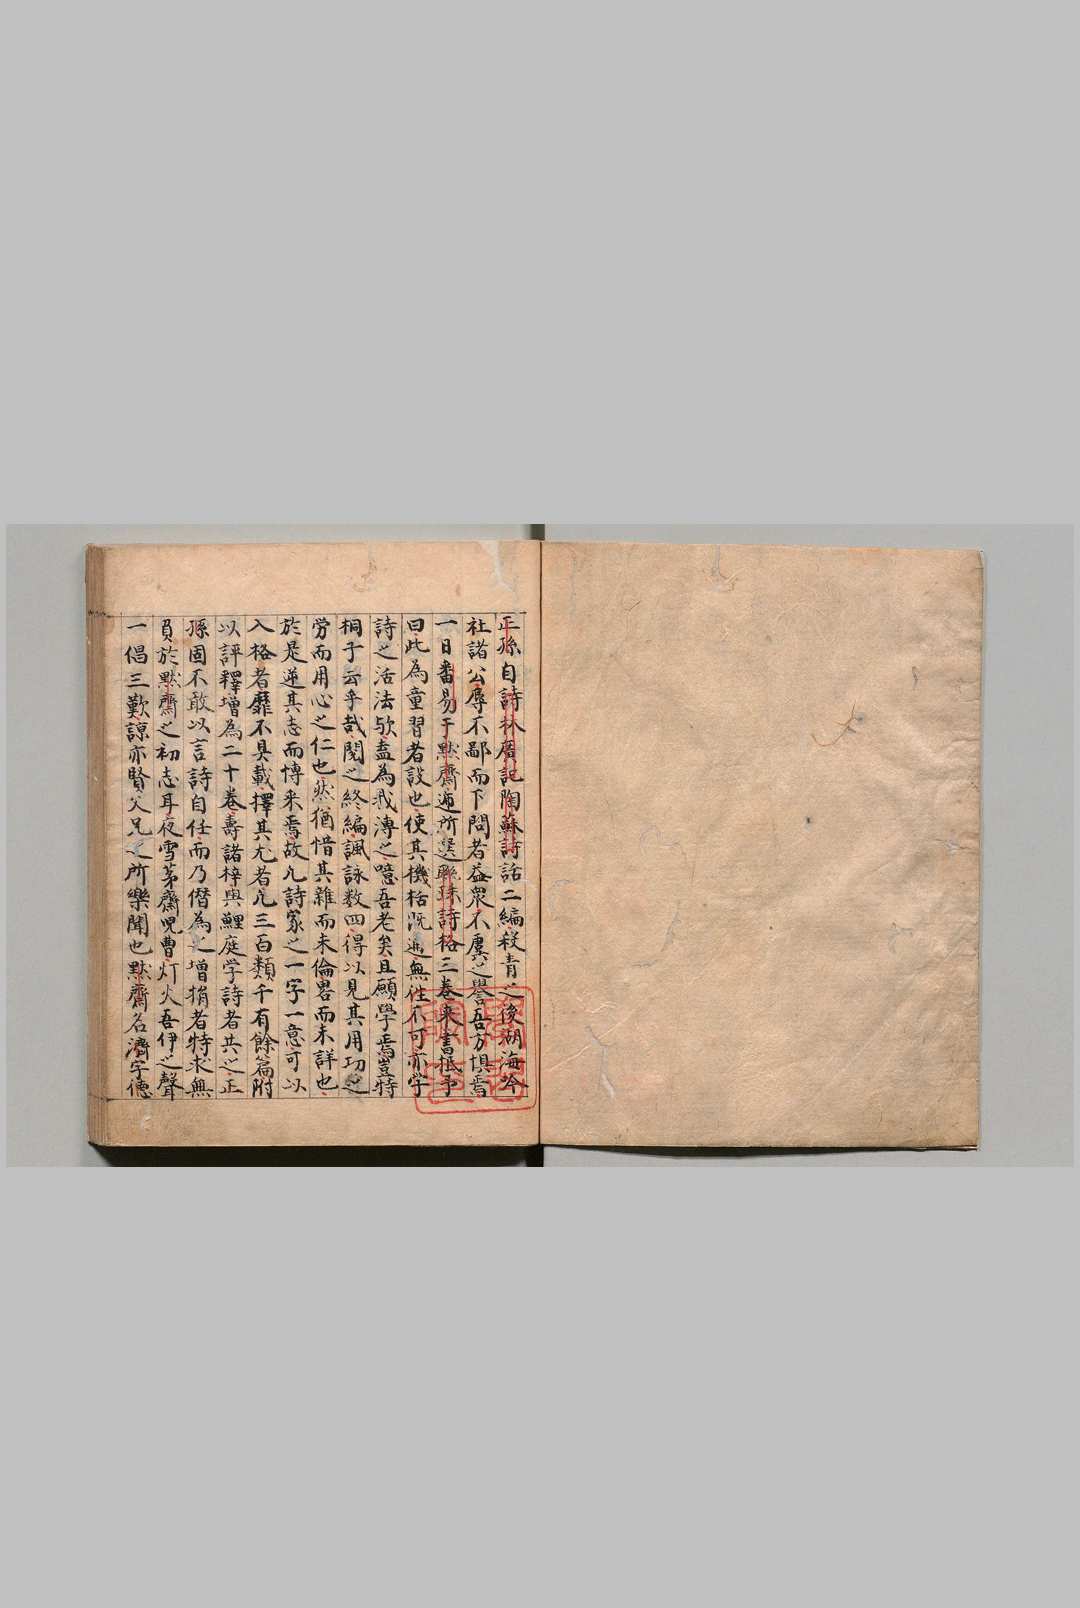 正孫自詩林廣記陶蘇詩話二編殺青之後湖海吟
社諸公辱不鄙而下問者益衆不虞之譽吾方懼焉
一日番易于默齋逓所選聯珠詩格三卷来書抵予
曰此為童習者設也使其機栝既通無往不可亦学
詩之活法欤盍為我溥之噫吾老矣且願學焉豈特
桐子云乎哉閱之終編諷詠数四得以見其用功之
労而用心之仁也然猶惜其雜而未倫畧而未詳也
於是逆其志而博采焉故凡詩家之一字一意可以
入格者靡不具載擇其尤者凡三百類千有餘篇附
以評釋增為二十卷壽諸梓與鯉庭学詩者共之正
孫固不敢以言詩自任而乃僣為之增損者特求無
負於默齋之初志耳夜雪茅齋児曹灯火吾伊之聲
一倡三歎諒亦賢父兄之所樂聞也默齋名濟字徳